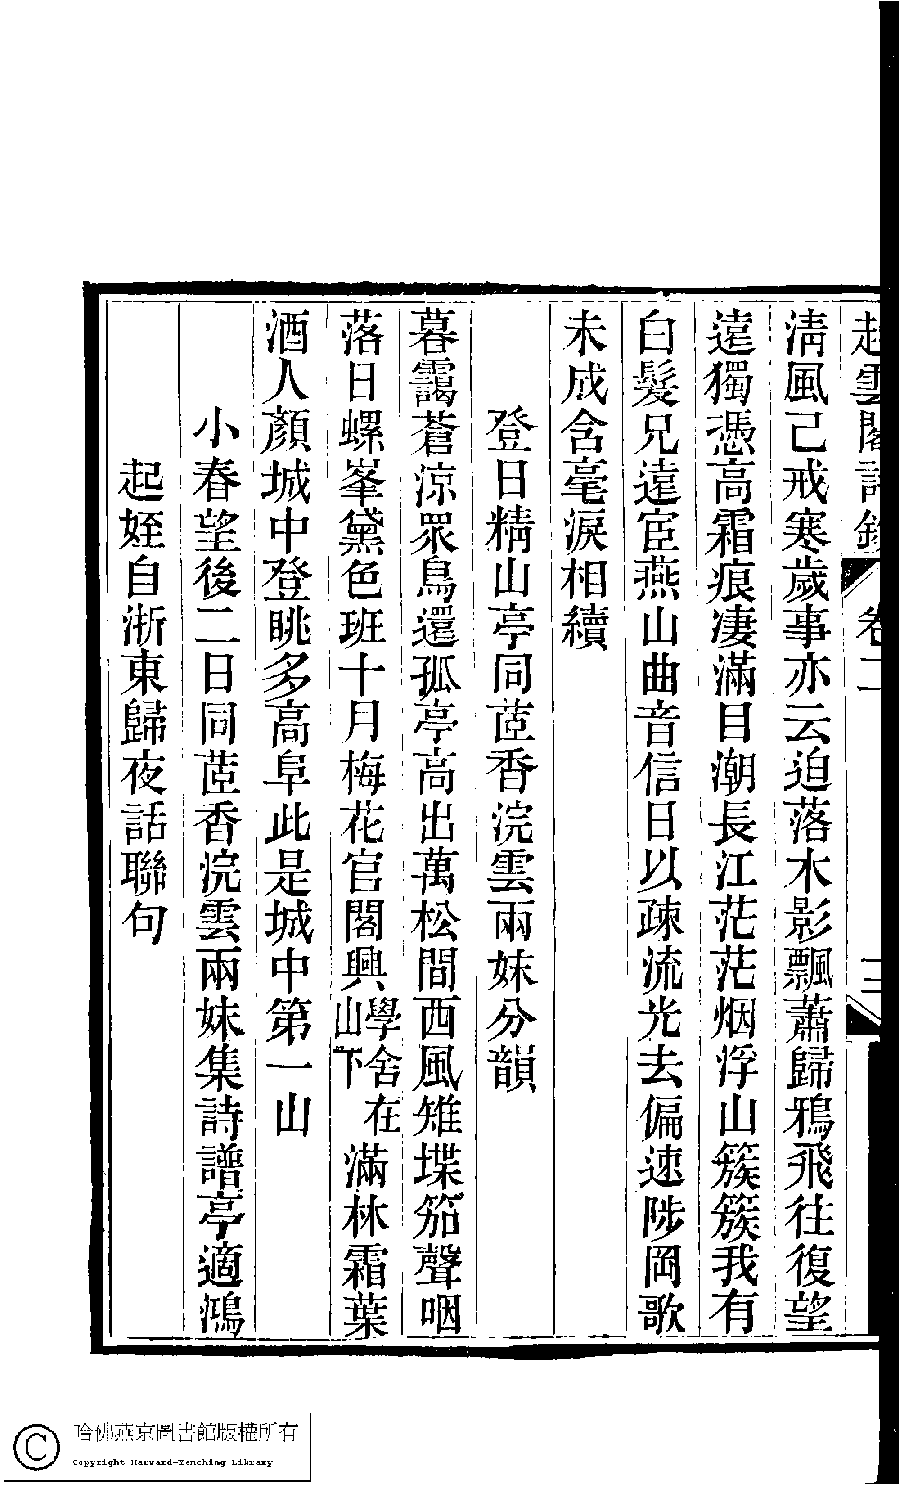 起雲閣詩鈔 卷二 三
淸風已戒寒歲事亦云迫落木影飄蕭歸鴉飛往復望
遠獨憑高霜痕凄滿目潮長江茫茫烟浮山簇簇我有
白髮兄遠宦燕山曲音信日以疎流光去偏速陟岡歌
未成含毫淚相續
登日精山亭同茝香浣雲兩妹分韻
暮靄蒼涼眾鳥還孤亭高出萬松間西風雉堞笳聲咽
落日螺峯黛色班十月梅花官閣興學舍在山下滿林霜葉
酒人顏城中登眺多高阜此是城中第一山
小春望後二日同茝香浣雲兩妹集詩譜亭適鴻
起姪自浙東歸夜話聯句
哈佛燕京圖書館版權所有
Copyright Harvard-Yenching Library